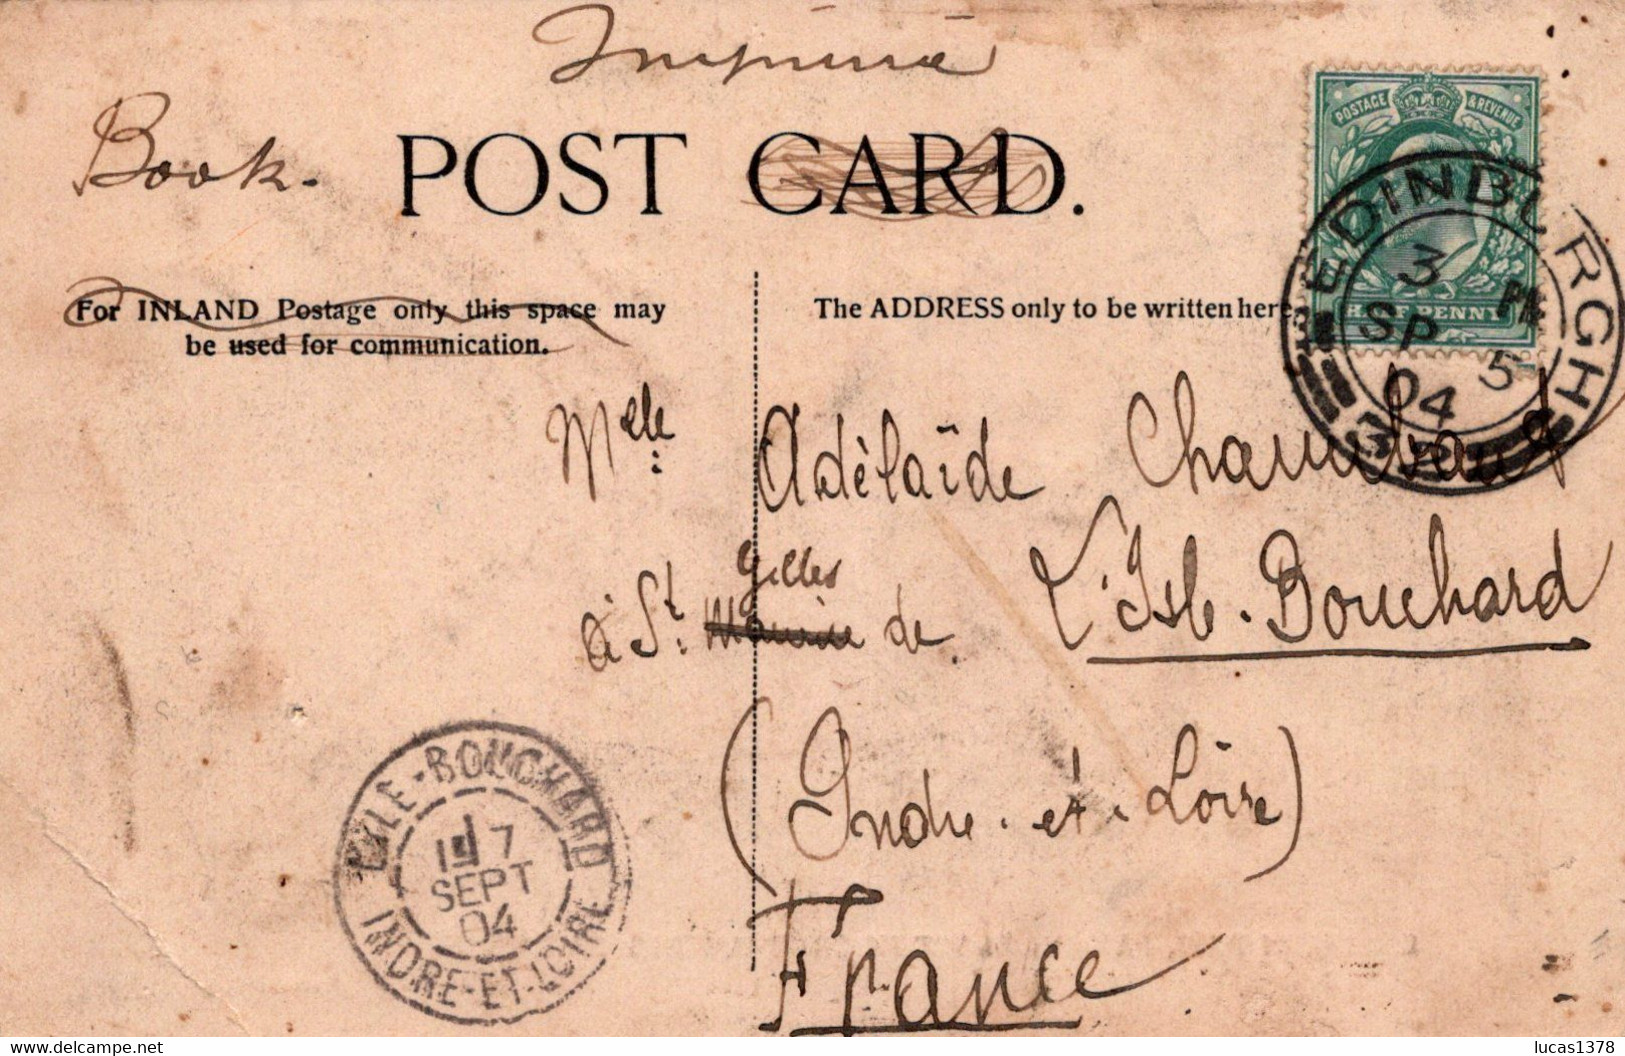 Imprimé
Book.
POST CARD.
POSTAGE & REVENUE
HALF PENNY
EDINBURGH
3 PM
SP 5
04
For INLAND Postage only this space may
be used for communication.
The ADDRESS only to be written here.
Melle: Adèlaïde
Gilles
à St: de L'Isle-Bouchard
(Indre-et-Loire)
France
L'ILE-BOUCHARD
7
SEPT
04
INDRE-ET-LOIRE
delcampe.net
lucas1378